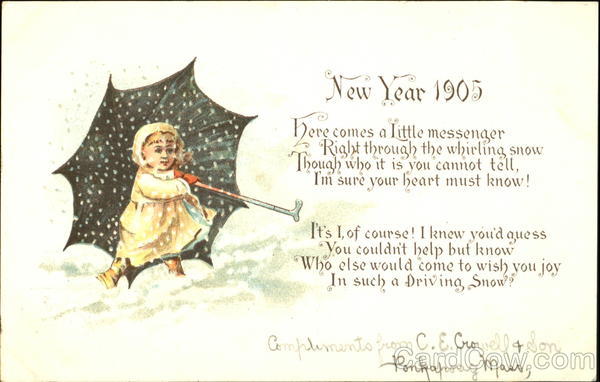 New Year 1905
Here comes a Little messenger
Right through the whirling snow
Though who it is you cannot tell,
I'm sure your heart must know!
It's I, of course! I knew you'd guess
You couldn't help but know
Who else would come to wish you joy
In such a Driving Snow?
Compliments from C. E. Crowell & Son
Mass,
CardCow.com